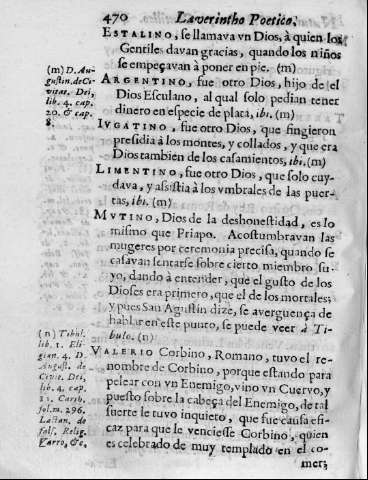 470 Laverintho Poetico,
ESTALINO, se llamava vn Dios, à quien los
Gentiles davan gracias, quando los niños
se empeçavan à poner en pie. (m)
(m) D. Au-
gustin. de Ci-
vitat. Dei,
lib. 4. cap.
20. & cap.
8.
ARGENTINO, fue otro Dios, hijo de el
Dios Esculano, al qual solo pedian tener
dinero en especie de plata, ibi. (m)
IVGATINO, fue otro Dios, que fingieron
presidia à los montes, y collados, y que era
Dios tambien de los casamientos, ibi. (m)
LIMENTINO, fue otro Dios, que solo cuy-
dava, y assistia à los vmbrales de las puer-
tas, ibi. (m)
MVTINO, Dios de la deshonestidad, es lo
mismo que Priapo. Acostumbravan las
mugeres por ceremonia precisa, quando se
casavan sentarse sobre cierto miembro su-
yo, dando à entender, que el gusto de los
Dioses era primero, que el de los mortales;
y pues San Agustin dize, se averguença de
hablar en este punto, se puede veer à Ti-
bulo. (n)
(n) Tibul.
lib. 1. Eli
gian. 4. D.
August. de
Civit. Dei,
lib. 4. cap.
11. Carth.
fol. m. 296.
Lactan. de
fals. Relig.
Varro, &c.
VALERIO Corbino, Romano, tuvo el re-
nombre de Corbino, porque estando para
pelear con vn Enemigo, vino vn Cuervo, y
puesto sobre la cabeça del Enemigo, de tal
suerte le tuvo inquieto, que fue causa efi-
caz para que le venciesse Corbino, quien
es celebrado de muy templado en el co-
mer;